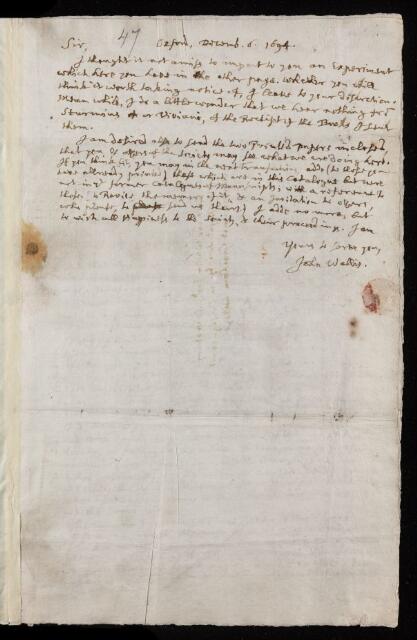 47
Sir, Oxford, Decemb. 6. 1694.
I thought it not amiss to impart to you an Experiment
which here you have in the other page. Whether you shall
think it worth taking notice of, I leave to your discretion.
Mean while, I do a little wonder that we hear nothing from
Sturmius or Viviani, of the Receipt of the Books I sent
them.
I am desired also to send the two Printed papers inclosed
that you & others of the Society may see what we are doing here.
If you think fit you may in the next Transaction add, to those you
have allready printed, those which are in this Catalogue but were
not in former Catalogues of Manuscripts, with a reference to
those, to Revive the memory of it, & an Invitation to others,
who please, to send us theirs. I adde no more, but
to wish all Happiness to the Society, & their proceedings. I am
Yours to serve you,
John Wallis.